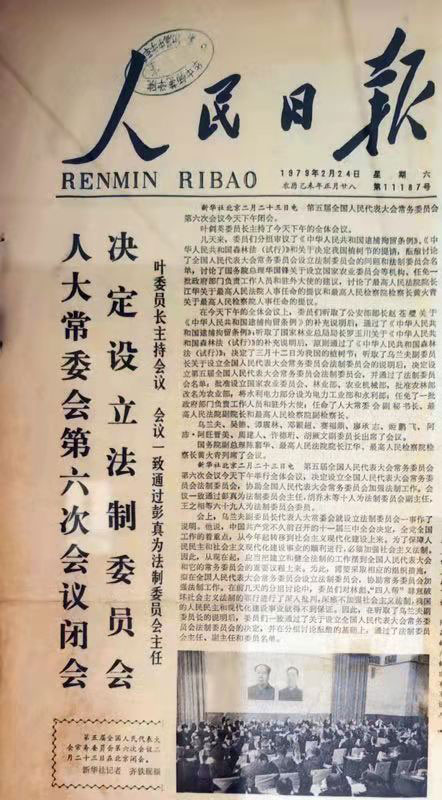 人民日报
RENMIN RIBAO
1979年2月24日 星期六
农历己未年正月廿八 第11187号
人大常委会第六次会议闭会
决定设立法制委员会
叶委员长主持会议 会议一致通过彭真为法制委员会主任
新华社北京二月二十三日电 第五届全国人民代表大会常务委员会
第六次会议今天下午闭会。
叶剑英委员长主持了今天下午的全体会议。
几天来，委员们分组审议了《中华人民共和国逮捕拘留条例》、《中
华人民共和国森林法（试行）》和关于决定我国植树节的提请，酝酿讨论
了全国人民代表大会常务委员会设立法制委员会的问题和法制委员会名
单，讨论了国务院总理华国锋关于设立国家农业委员会等机构、任免一
批政府部门负责工作人员和驻外大使的建议，讨论了最高人民法院院长
江华关于最高人民法院人事任命的提议和最高人民检察院检察长黄火青
关于最高人民检察院人事任命的提议。
在今天下午的全体会议上，委员们听取了公安部部长赵苍璧关于
《中华人民共和国逮捕拘留条例》的补充说明后，通过了《中华人民共
和国逮捕拘留条例》；听取了国家林业总局局长罗玉川关于《中华人民共
和国森林法（试行）》的补充说明后，原则通过了《中华人民共和国森林
法（试行）》；决定了三月十二日为我国的植树节；听取了乌兰夫副委员
长关于设立全国人民代表大会常务委员会法制委员会的说明后，决定设
立第五届全国人民代表大会常务委员会法制委员会，并通过了法制委员
会名单；批准设立国家农业委员会、林业部、农业机械部，批准农林部
改名为农业部，将水利电力部分设为电力工业部和水利部；任免了一批
政府部门负责工作人员和驻外大使；任命了人大常委会副秘书长、最
高人民法院副院长和最高人民检察院副检察长。
乌兰夫、吴德、谭震林、邓颖超、赛福鼎、廖承志、姬鹏飞、阿
沛·阿旺晋美、周建人、许德珩、胡厥文副委员长出席了会议。
国务院副总理陈慕华、最高人民法院院长江华、最高人民检察院检
察长黄火青列席了会议。
新华社北京二月二十三日电 第五届全国人民代表大会常务委员会
第六次会议今天下午举行全体会议，决定设立全国人民代表大会常务委
员会法制委员会，协助全国人民代表大会常务委员会加强法制工作。会
议一致通过彭真为法制委员会主任，胡乔木等十人为法制委员会副主任，
王之相等六十九人为法制委员会委员。
会上，乌兰夫副委员长代表人大常委会就设立法制委员会一事作了
说明。他说，中国共产党不久前召开的十一届三中全会决定，全党全国
工作的着重点，从今年起转移到社会主义现代化建设上来。为了保障人
民民主和社会主义现代化建设事业的顺利进行，必须加强社会主义法制。
为此，
第五届全国人民代表大
会常务委员会第六次会议二
月二十三日在北京闭会。
新华社记者 齐铁砚摄